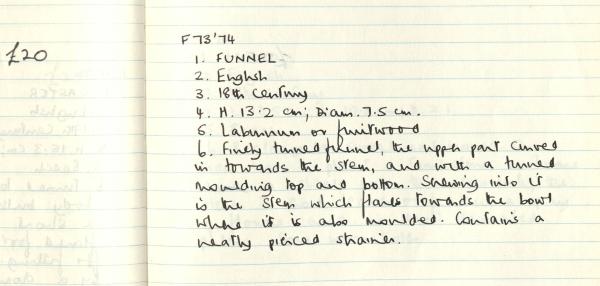 £20
F73'74
1. FUNNEL
2. English
3. 18th Century
4. H. 13.2 cm; Diam. 7.5 cm.
5. Laburnum or fruitwood
6. Finely turned funnel, the upper part curved
in towards the stem, and with a turned
moulding top and bottom. Screwing into it
is the stem which flares towards the bowl
where it is also moulded. Contains a
neatly pierced strainer.